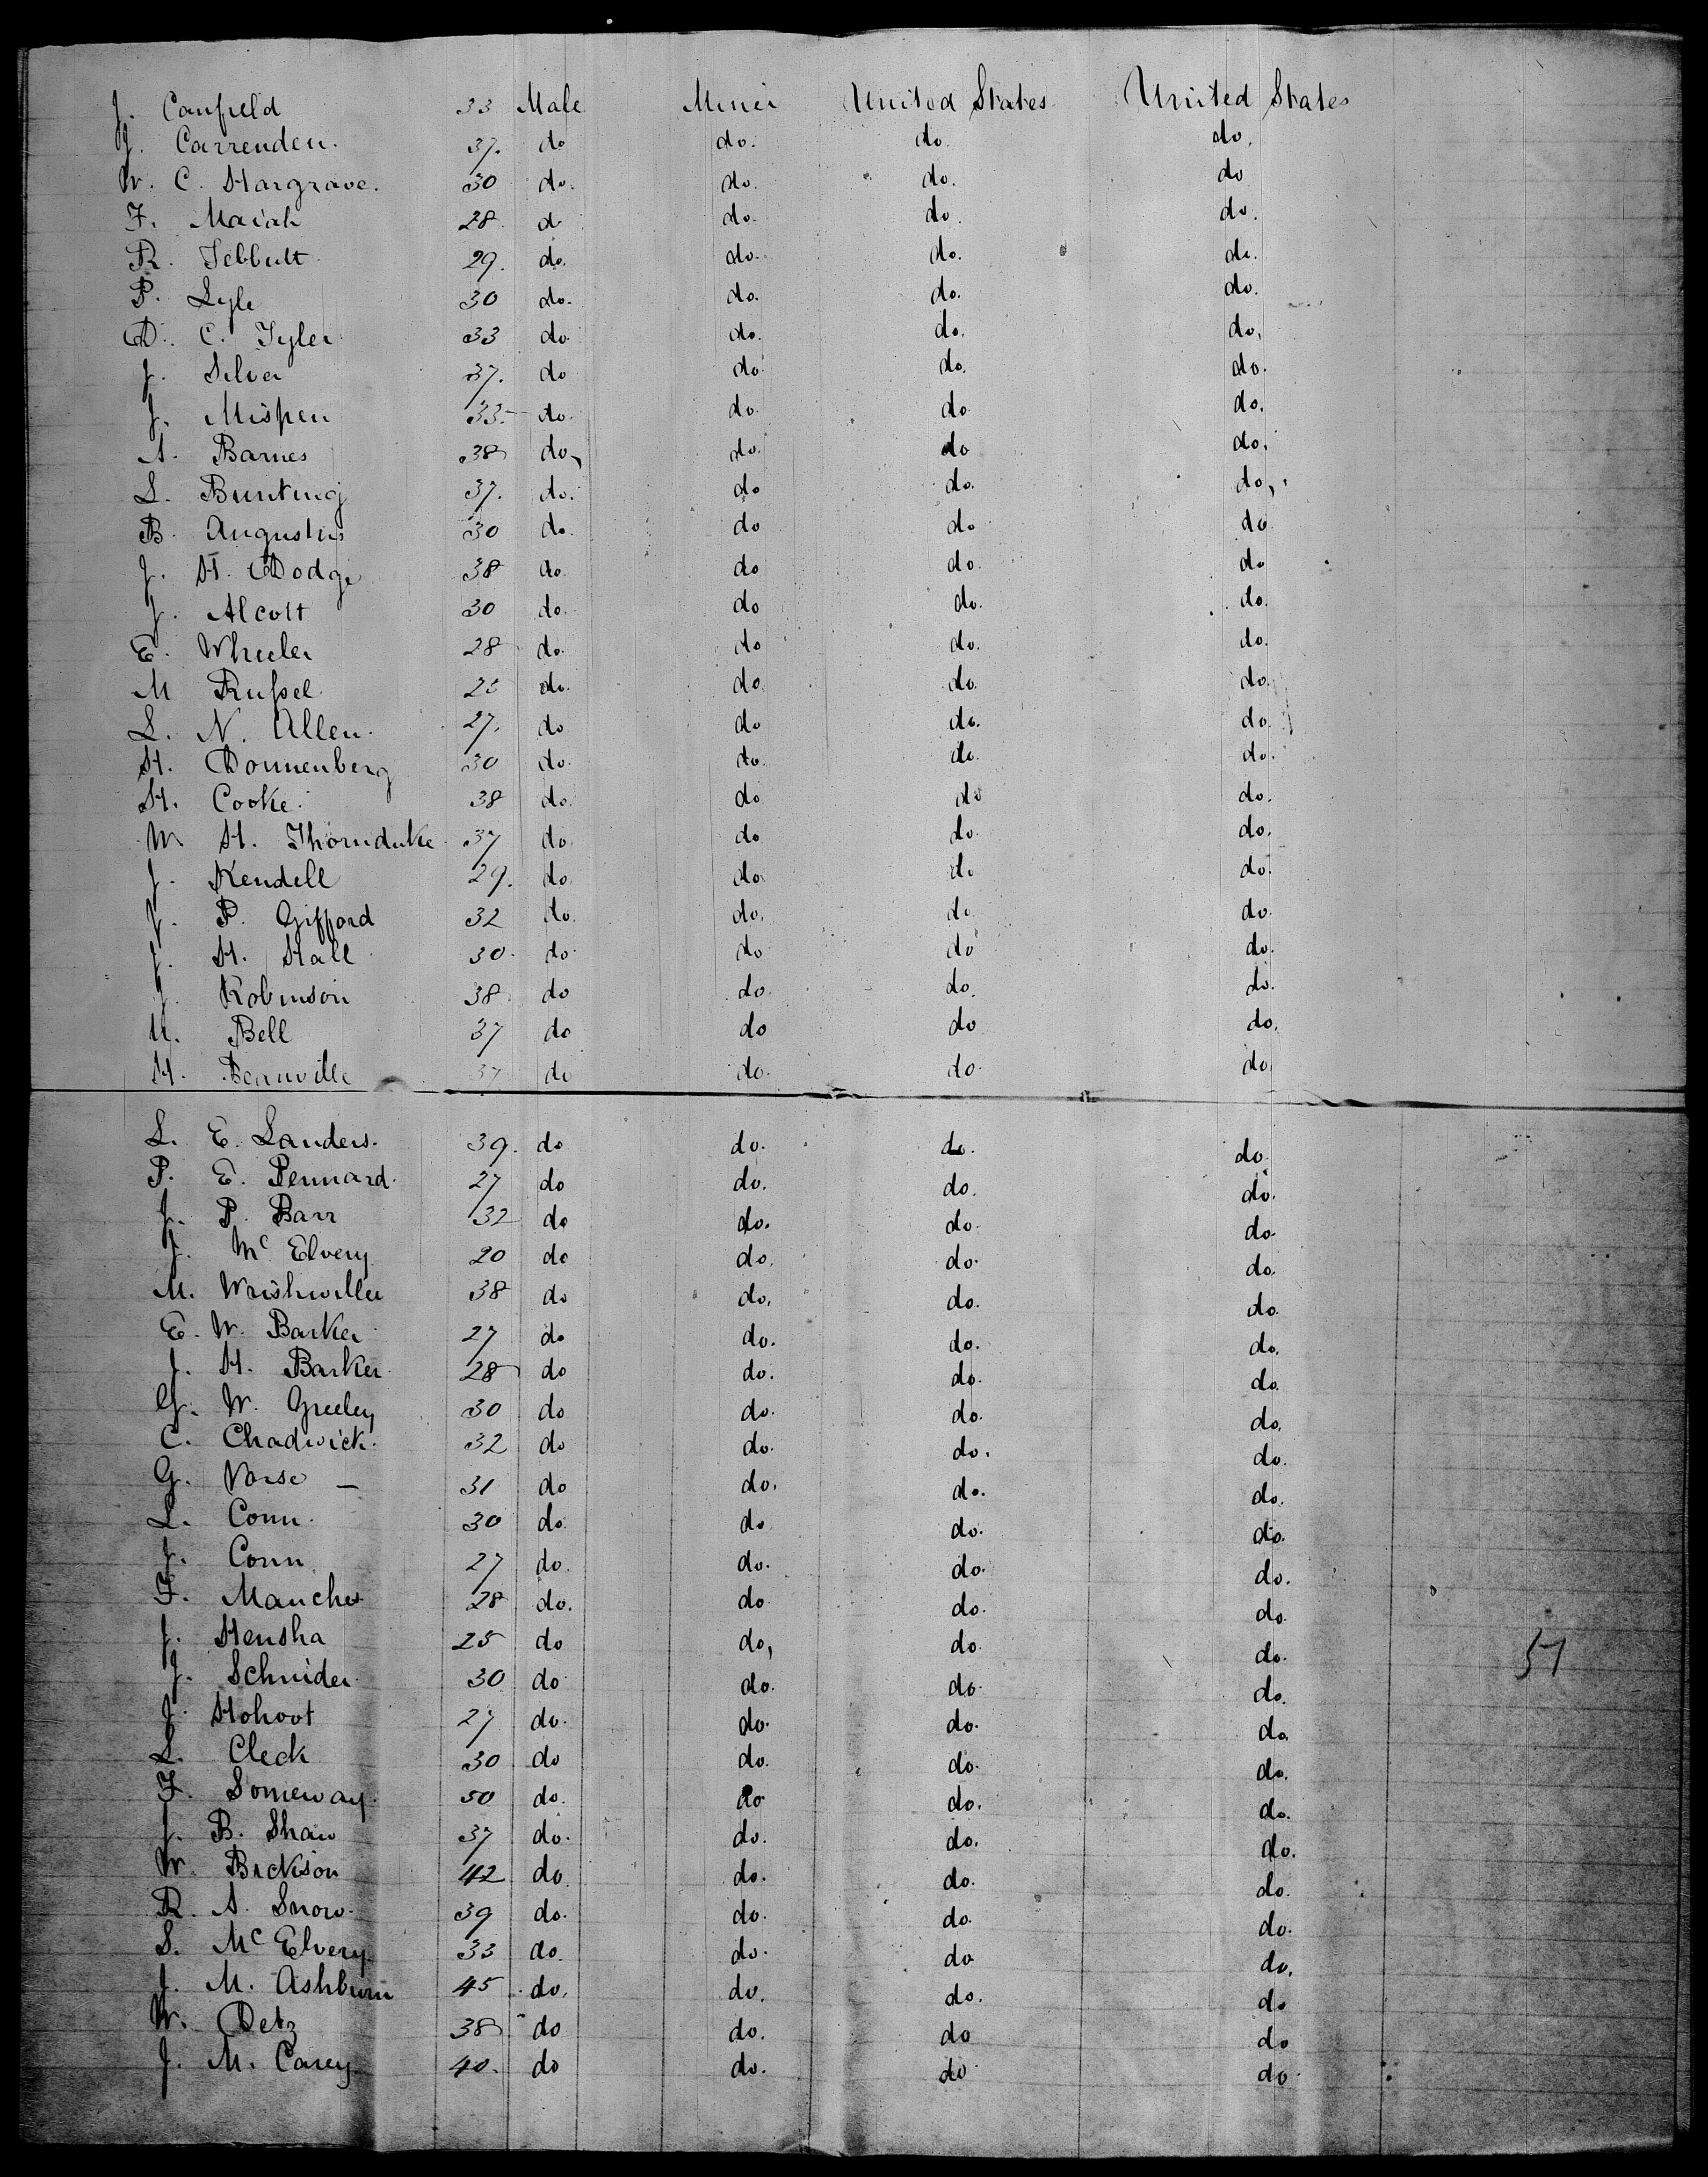 J. Canfield 33 Male Miner United States United States
J. Carrenden. 37. do do. do. do.
W. C. Hargrave. 30 do. do. do. do
F. Maiah 28 d do. do. do.
R. Tebbutt 29. do. do. do. do.
P. Lyle 30 do. do. do. do.
D. C. Tyler 33 do. do. do. do.
J. Silva 37. do do do. do.
J. Mispen 33 do. do. do do.
A. Barnes 38 do, do. do do.
L. Bunting 37. do. do do. do,
B. Augustus 30 do. do do do
J. H. Dodge 38 do. do do. do
J. Alcott 30 do. do do. do.
E. Wheeler 28 do. do do. do.
M Russel 23 do. do. do. do.
L. N. Allen. 27. do do do. do.
H. Donnenberg 30 do. do. do. do.
H. Cooke. 38 do. do do do.
W H. Thornduke 37 do do do. do.
J. Kendell 29. do. do do do.
J. P. Gifford 32 do. do. do do.
J. H. Hall 30. do. do do do.
J. Robinson 38 do do. do. do.
U. Bell 37 do do do do.
H. Beauville 37 do do. do. do.
L. E. Landers. 39. do do. do. do.
P. E. Pennard. 27 do do. do. do.
J. P. Barr 32 do do. do. do.
J. Mc Elvery 20 do do. do. do.
M. 38 do do. do. do.
E. W. Barker 27 do do. do. do.
J. H. Barker. 28 do do. do. do.
G. W. Greeley 30 do do. do. do.
C. Chadwick. 32 do do. do. do.
G. Vorse — 31 do do. do. do.
L. Conn. 30 do. do. do. do.
J. Conn 27 do. do. do. do.
F. Manchet 28 do. do do. do.
J. Hensha 25 do do, do. do.
J. Schnider. 30 do. do. do. do.
J. Hohoot 27 do. do. do. do.
L. Cleck 30 do do. do. do.
F. Someway. 50 do. do do. do.
J. B. Shaw 37 do. do. do. do.
W. Bickison 42 do. do. do. do.
R. A. Snow. 39 do. do. do. do.
S. Mc Elvery 33 do. do. do do.
J. M. Ashburn 45 do. do. do. do
W. Detz 38 do do. do do
J. M. Carey 40. do do. do do.
51